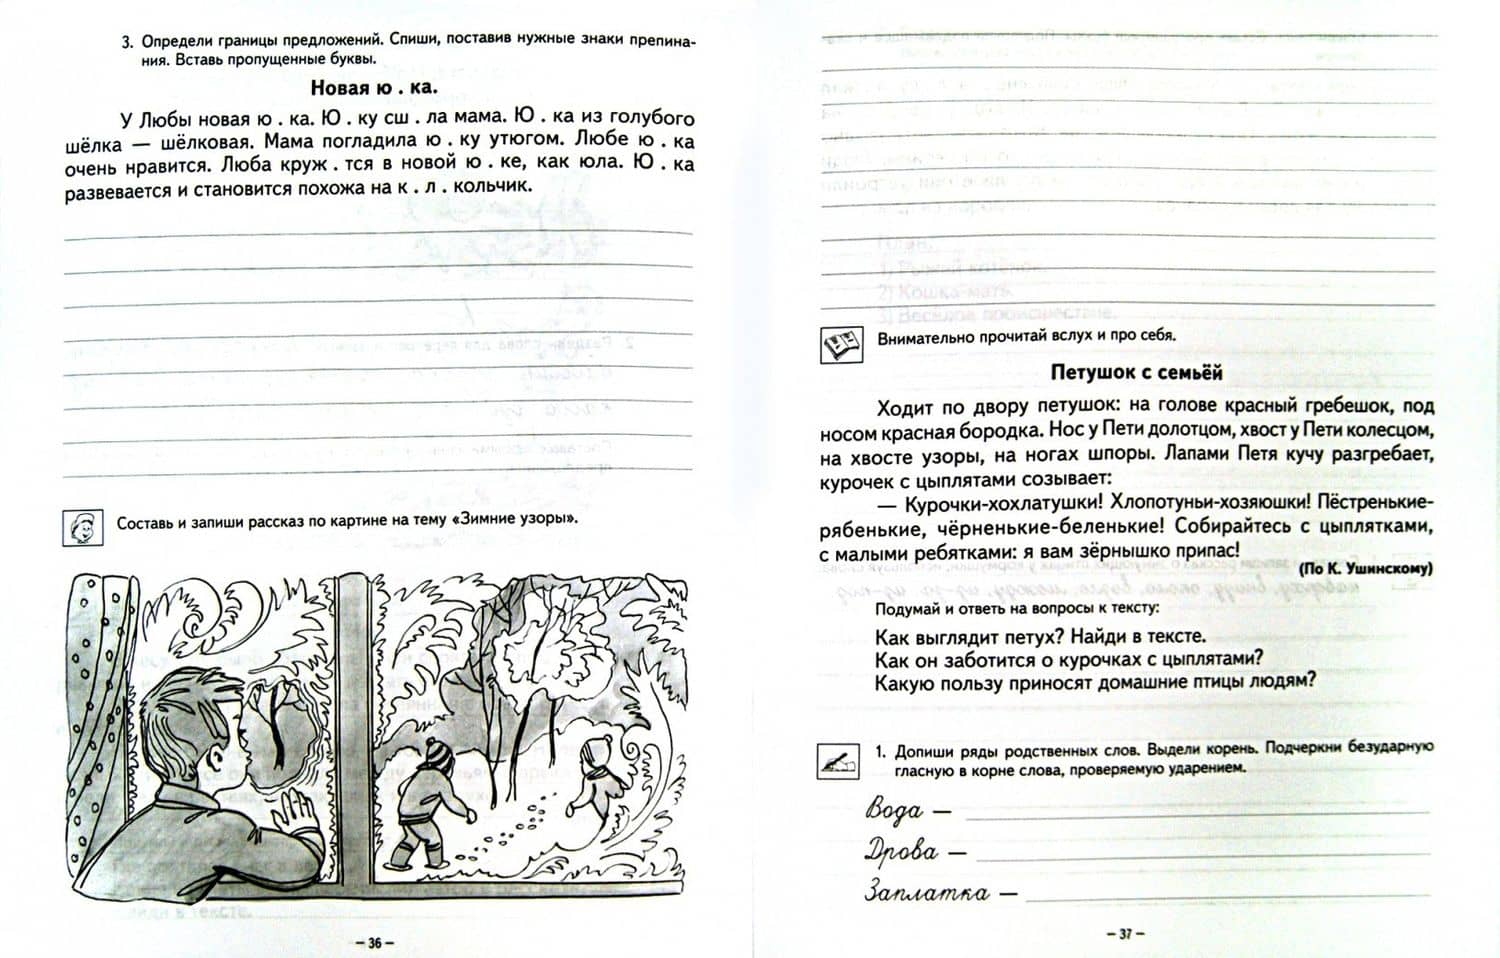 3. Определи границы предложений. Спиши, поставив нужные знаки препина-
ния. Вставь пропущенные буквы.
Новая ю . ка.
У Любы новая ю . ка. Ю . ку сш . ла мама. Ю . ка из голубого
шёлка — шёлковая. Мама погладила ю . ку утюгом. Любе ю . ка
очень нравится. Люба круж . тся в новой ю . ке, как юла. Ю . ка
развевается и становится похожа на к . л . кольчик.
Составь и запиши рассказ по картине на тему «Зимние узоры».
– 36 –
Внимательно прочитай вслух и про себя.
Петушок с семьёй
Ходит по двору петушок: на голове красный гребешок, под
носом красная бородка. Нос у Пети долотцом, хвост у Пети колесцом,
на хвосте узоры, на ногах шпоры. Лапами Петя кучу разгребает,
курочек с цыплятами созывает:
— Курочки-хохлатушки! Хлопотуньи-хозяюшки! Пёстренькие-
рябенькие, чёрненькие-беленькие! Собирайтесь с цыплятками,
с малыми ребятками: я вам зёрнышко припас!
(По К. Ушинскому)
Подумай и ответь на вопросы к тексту:
Как выглядит петух? Найди в тексте.
Как он заботится о курочках с цыплятами?
Какую пользу приносят домашние птицы людям?
1. Допиши ряды родственных слов. Выдели корень. Подчеркни безударную
гласную в корне слова, проверяемую ударением.
Вода —
Дрова —
Заплатка —
– 37 –